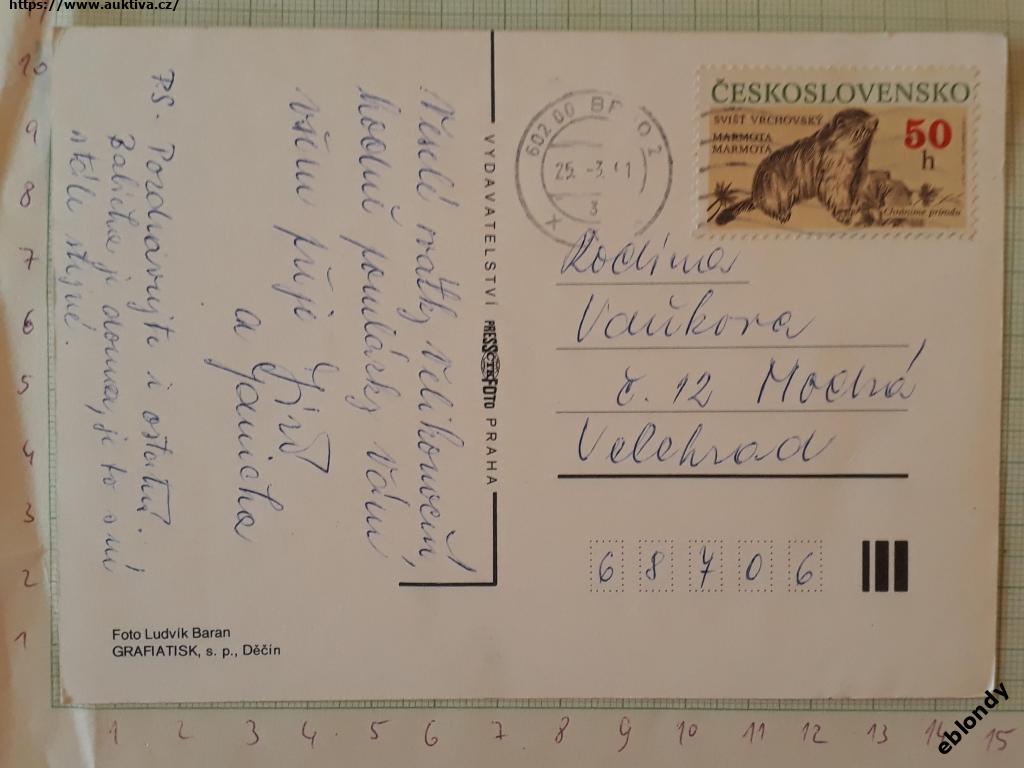 https://www.auktiva.cz/
Veselé svátky velikonoční,
hodně pomlázky Vám
všem přeje Jiří
a Janicka
P.S. Pozdravujte i ostatní.
Babička je doma, je to s ní
stále stejné.
VYDAVATELSTVÍ PRESSFOTO PRAHA
Foto Ludvík Baran
GRAFIATISK, s. p., Děčín
602 00 BR O 2
25. -3. 1
3
ČESKOSLOVENSKO
SVIŠŤ VRCHOVSKÝ
MARMOTA
MARMOTA
50
h
Chráníme přírodu
Rodina
Vaňkova
č. 12 Modrá
Velehrad
6 8 7 0 6
10
9
8
7
6
5
4
3
2
1
1 2 3 4 5 6 7 8 9 10 11 12 13 14 15
eblondy